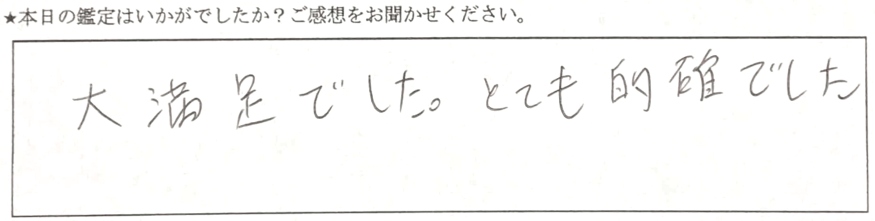 ★本日の鑑定はいかがでしたか？ご感想をお聞かせください。
大満足でした。とても的確でした